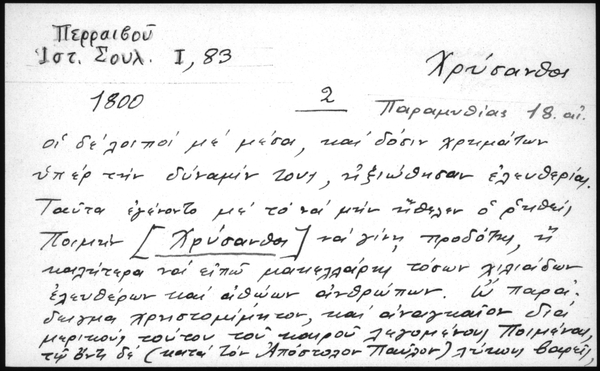 Περραιβοῦ
Ἱστ. Σουλ. I, 83
Χρύσανθος
1800
2
Παραμυθίας 18. αἰ.
οἱ δὲ λοιποὶ μὲ μέσα, καὶ δόσιν χρημάτων
ὑπὲρ τὴν δύναμίν τους, ἠξιώθησαν ἐλευθερίας.
Ταῦτα ἐγένοντο μὲ τὸ νὰ μὴν ἤθελεν ὁ ῥηθεὶς
Ποιμὴν [Χρύσανθος] νὰ γίνῃ προδότης, ἢ
καλήτερα νὰ εἰπῶ μακελλάρης τόσων χιλιάδων
ἐλευθέρων καὶ ἀθώων ἀνθρώπων. Ὢ παρά-
δειγμα χριστομίμητον, καὶ ἀναγκαῖον διὰ
μερικοὺς τούτου τοῦ καιροῦ λεγομένους Ποιμένας,
τῇ ὄντι δὲ (κατὰ τὸν Ἀπόστολον Παῦλον) λύκους βαρεῖς,